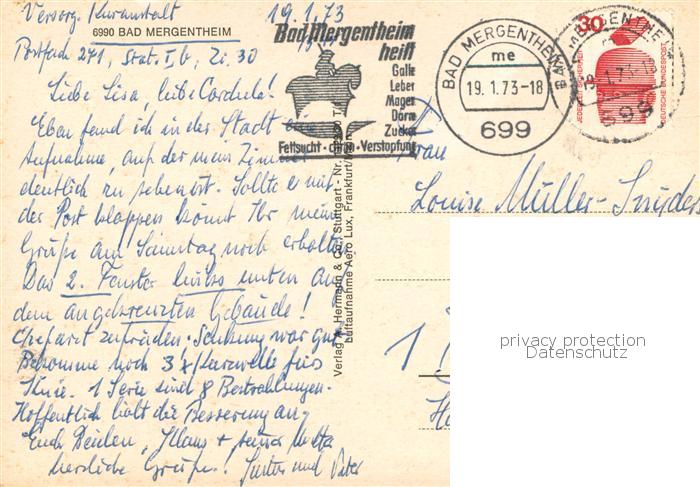 Versorg. Kuranstalt 19.1.73
6990 BAD MERGENTHEIM
Postfach 241, Stat. I, b, Zi. 30
Liebe Lisa, liebe Cordula!
Eben fand ich in der Stadt eine
Aufnahme, auf der mein Zimmer
deutlich zu sehen ist. Sollte es mit
der Post klappen könnt Ihr meine
Grüße am Samstag noch erhalten
Das 2. Fenster links unten an
dem angekreuzten Gebäude!
zufrieden. Senkung war gut
Bekomme noch 3 x Kurzwelle fürs
Knie. 1 Serie sind 8 Bestrahlungen.
Hoffentlich hält die Besserung an.
Euch Beiden, Klaus +
herzliche Grüße! und Vater
Bad Mergentheim
heilt
Galle
Leber
Magen
Darm
Zucker
Fettsucht · chron · Verstopfung
BAD MERGENTHEIM
me
19.1.73-18
699
30
JEDERZEIT SICHERHEIT
DEUTSCHE BUNDESPOST
Verlag Hermann & Co., Stuttgart - Nr.
Luftaufnahme Aero Lux, Frankfurt/
Frau
Louise Müller-Snyders
1
privacy protection
Datenschutz